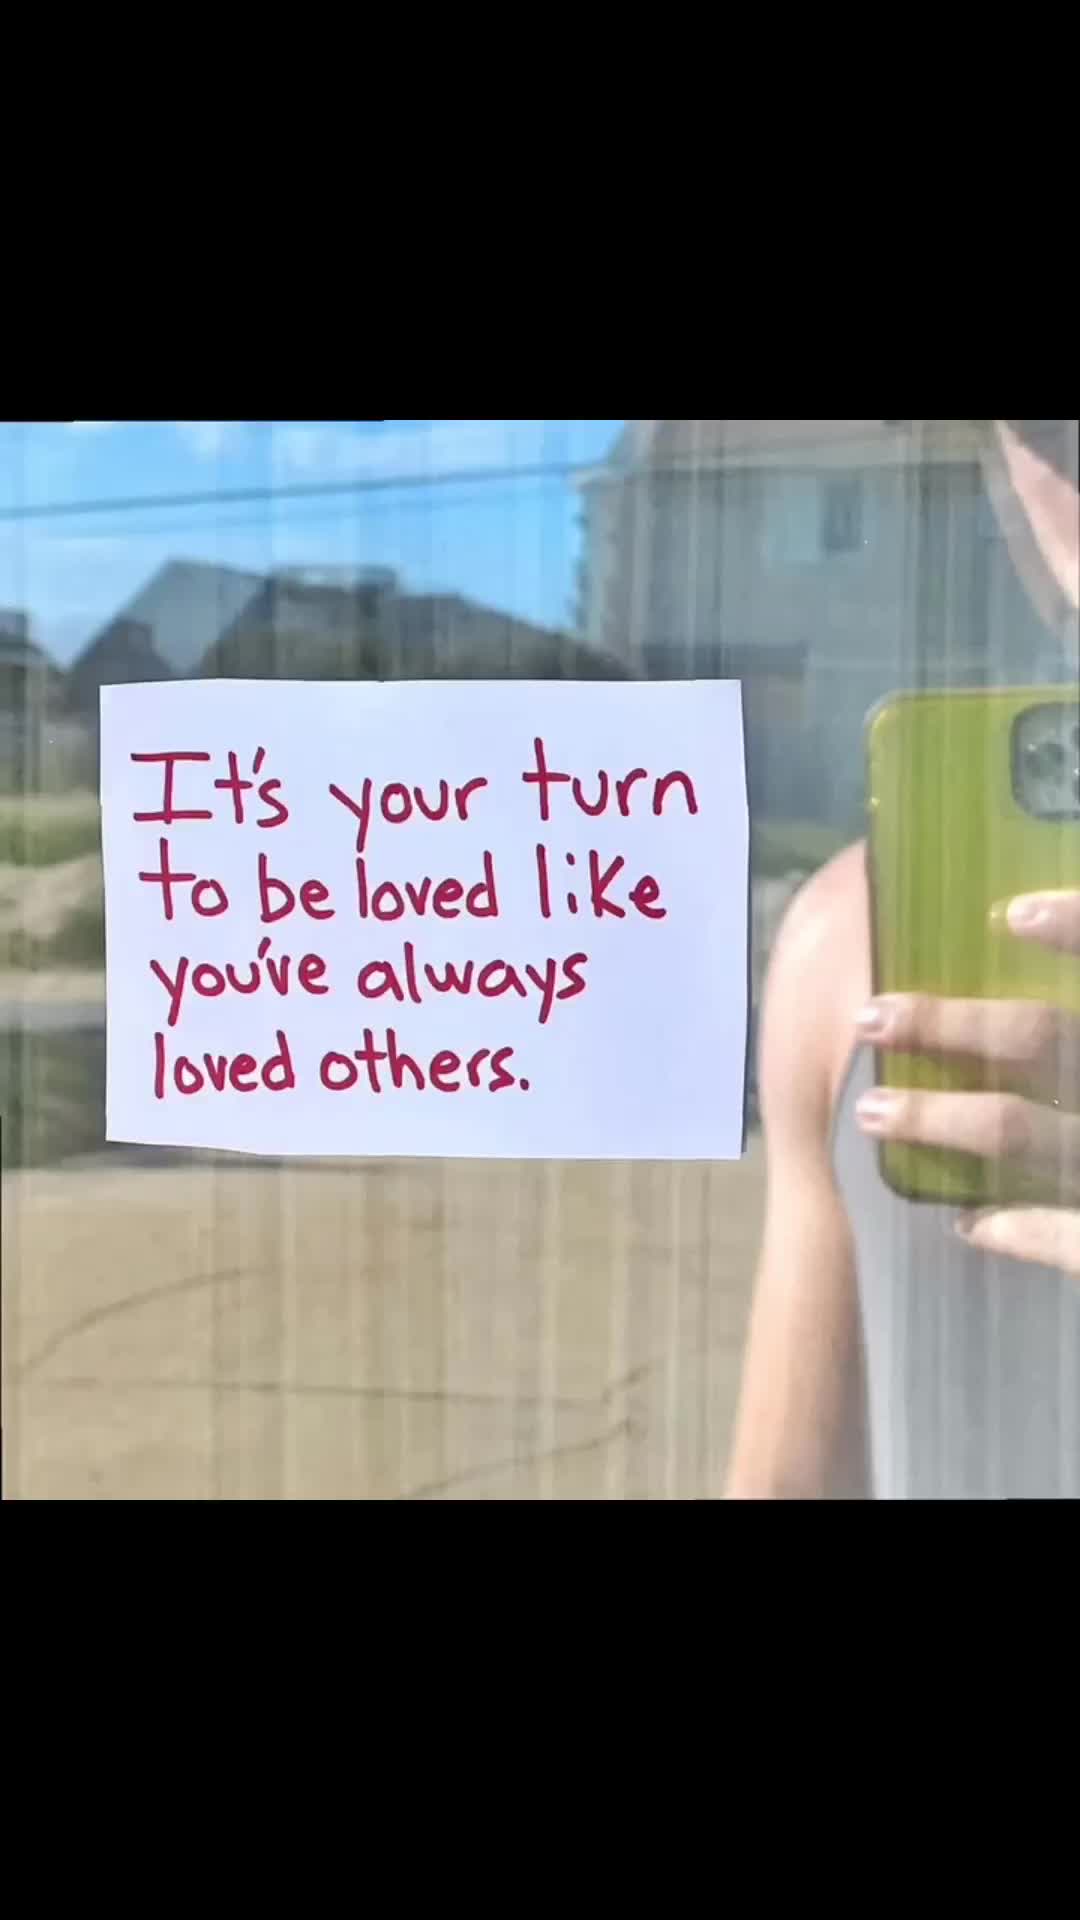 It's your turn
to be loved like
you've always
loved others.